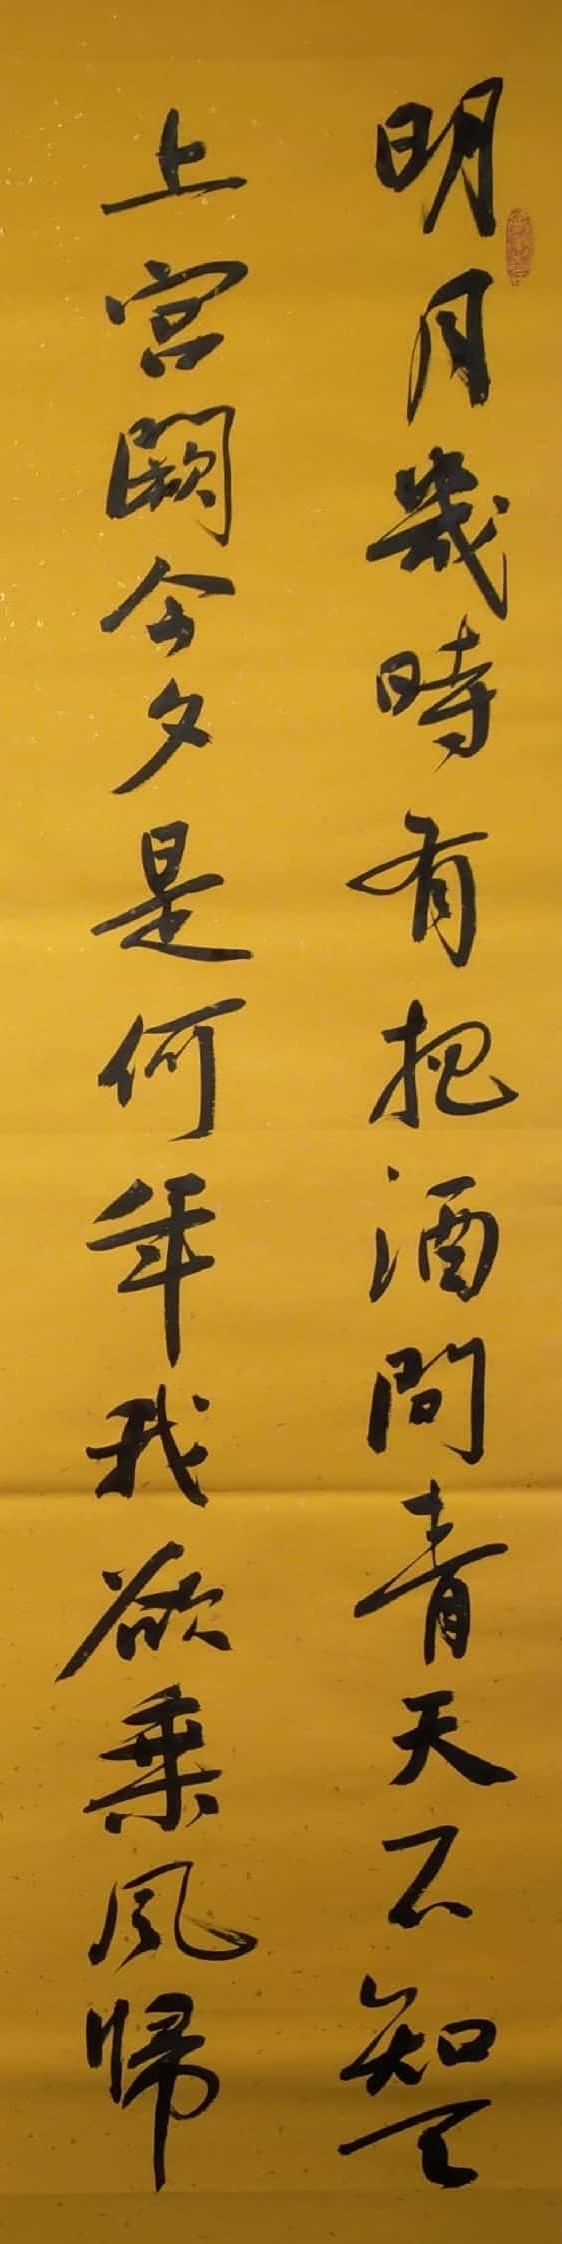 明月幾時有把酒問青天不知天
上宮闕今夕是何年我欲乘風歸